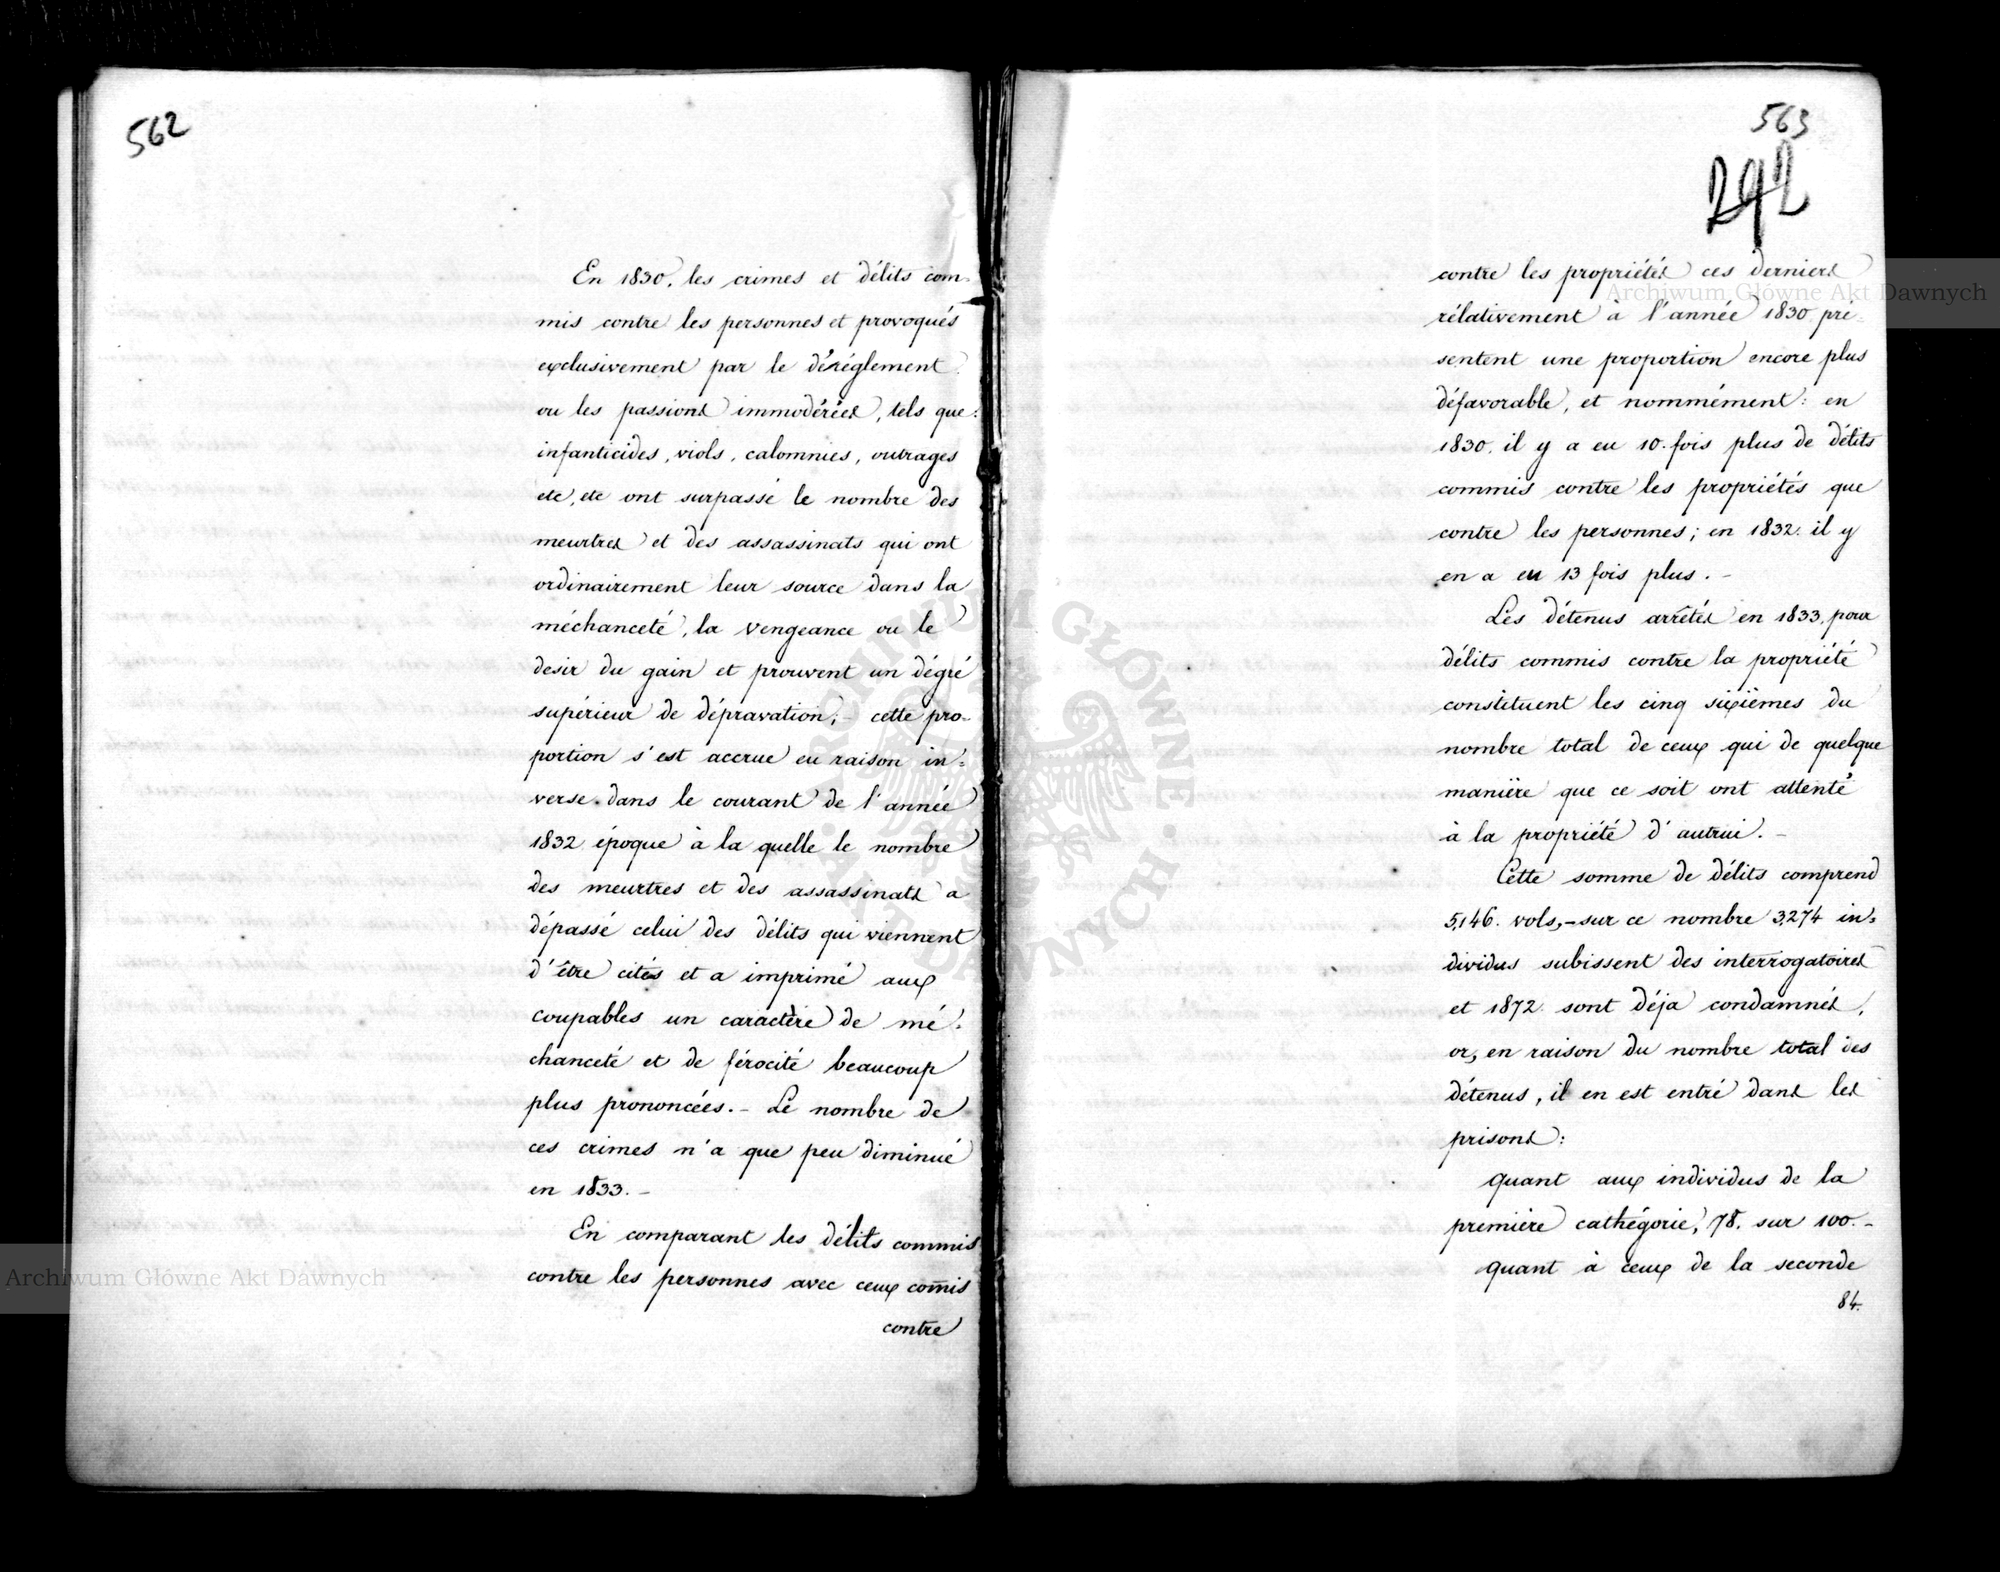 562
En 1830, les crimes et délits com-
mis contre les personnes et provoqués
exclusivement par le déréglement
ou les passions immodérées, tels que:
infanticides, viols, calomnies, outrages
etc, etc ont surpassé le nombre des
meurtres et des assassinats qui ont
ordinairement leur source dans la
méchanceté, la vengeance ou le
desir du gain et prouvent un dégré
supérieur de dépravation; - cette pro-
portion s'est accrue en raison in-
verse dans le courant de l'année
1832 époque à la quelle le nombre
des meurtres et des assassinats a
dépassé celui des délits qui viennent
d'être cités et a imprimé aux
coupables un caractère de mé-
chanceté et de férocité beaucoup
plus prononcées. - Le nombre de
ces crimes n'a que peu diminué
en 1833. -
En comparant les délits commis
contre les personnes avec ceux com̄is
contre
563
292
contre les propriétés ces derniers
rélativement à l'année 1830 pré-
sentent une proportion encore plus
défavorable, et nommément: en
1830. il y a eu 10. fois plus de délits
commis contre les propriétés que
contre les personnes; en 1832. il y
en a eu 13 fois plus. -
Les détenus arrêtés en 1833, pour
délits commis contre la propriété
constituent les cinq sixièmes du
nombre total de ceux qui de quelque
manière que ce soit ont attenté
à la propriété d'autrui. -
Cette somme de délits comprend
5,146. vols, - sur ce nombre 3,274 in-
dividus subissent des interrogatoires
et 1872 sont déja condamnés,
or, en raison du nombre total des
détenus, il en est entré dans les
prisons:
quant aux individus de la
première cathégorie, 78. sur 100. -
quant à ceux de la seconde
84.
Archiwum Główne Akt Dawnych
Archiwum Główne Akt Dawnych
ARCHIWUM GŁÓWNE · AKT DAWNYCH ·